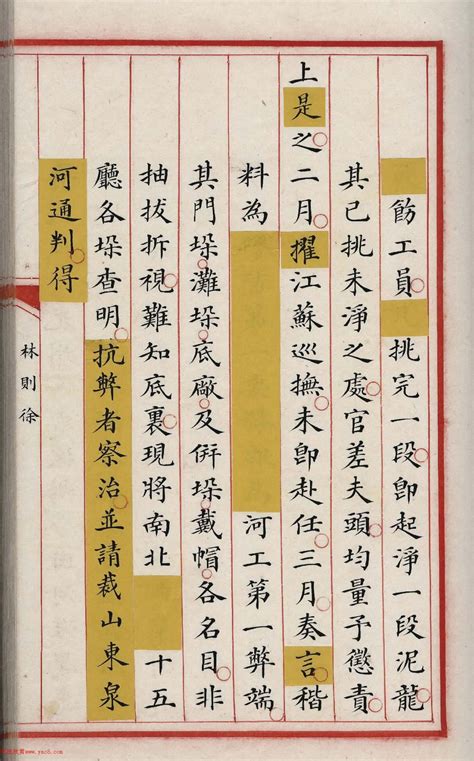 飭工員挑完一段卽起淨一段泥龍
其已挑未淨之處官差夫頭均量予懲責
上是之二月擢江蘇巡撫未卽赴任三月奏言稭
料為河工第一弊端
其門垜灘垜底廠及倂垜戴帽各名目非
抽拔拆視難知底裏現將南北十五
廳各垜查明抗弊者察治並請裁山東泉
河通判得
林則徐